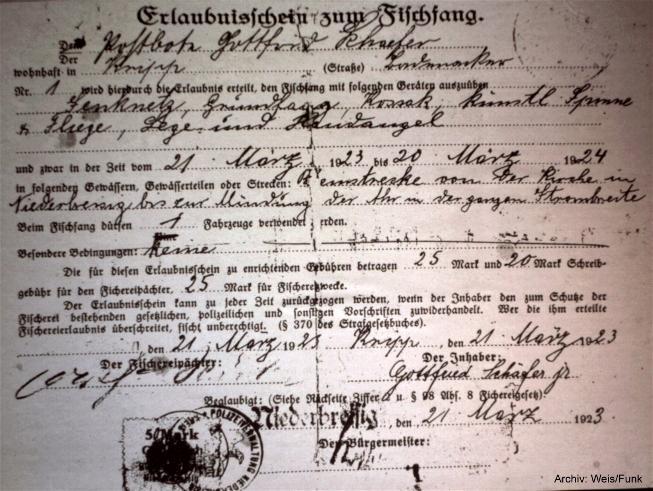 Erlaubnisschein zum Fischfang.
Dem Postbote Gottfred Schaefer
Der
wohnhaft in Kripp (Straße) Bodenacker
Nr. 1 wird hierdurch die Erlaubnis erteilt, den Fischfang mit folgenden Geräten auszuüben
Senknetz, Grundfang, Kossak, künstl Spinne
& Fliege, Lege und Handangel
und zwar in der Zeit vom 21 März 1923 bis 20 März 1924
in folgenden Gewässern, Gewässerteilen oder Strecken: Rheinstrecke von der Kirche in
Niederbreisig bis zur Mündung der Ahr in der ganzen Strombreite
Beim Fischfang dürfen 1 Fahrzeuge verwendet werden.
Besondere Bedingungen: Keine
Die für diesen Erlaubnisschein zu enrichtenden Gebühren betragen 25 Mark und 20 Mark Schreib-
gebühr für den Fichereipächter, 25 Mark für Fischereizwecke.
Der Erlaubnisschein kann zu jeder Zeit zurückgezogen werden, wenn der Inhaber den zum Schutze der
Fischerei bestehenden gesetzlichen, polizeilichen und sonstigen Vorschriften zuwiderhandelt. Wer die ihm erteilte
Fischereierlaubnis überschreitet, fischt unberechtigt. (§ 370 des Strafgesetzbuches).
, den 21 März 1923 Kripp, den 21 März 1923
Der Fischereipächter: Der Inhaber:
Gottfried Schäfer jr
Beglaubigt: (Siehe Rückseite Ziffer 4 u § 98 Abs. 8 Fichereigesetz).
Niederbreisig, den 21 März 1923
Der Bürgermeister:
5 Mark
POLIZEIVERWALTUNG NIEDER
Archiv: Weis/Funk